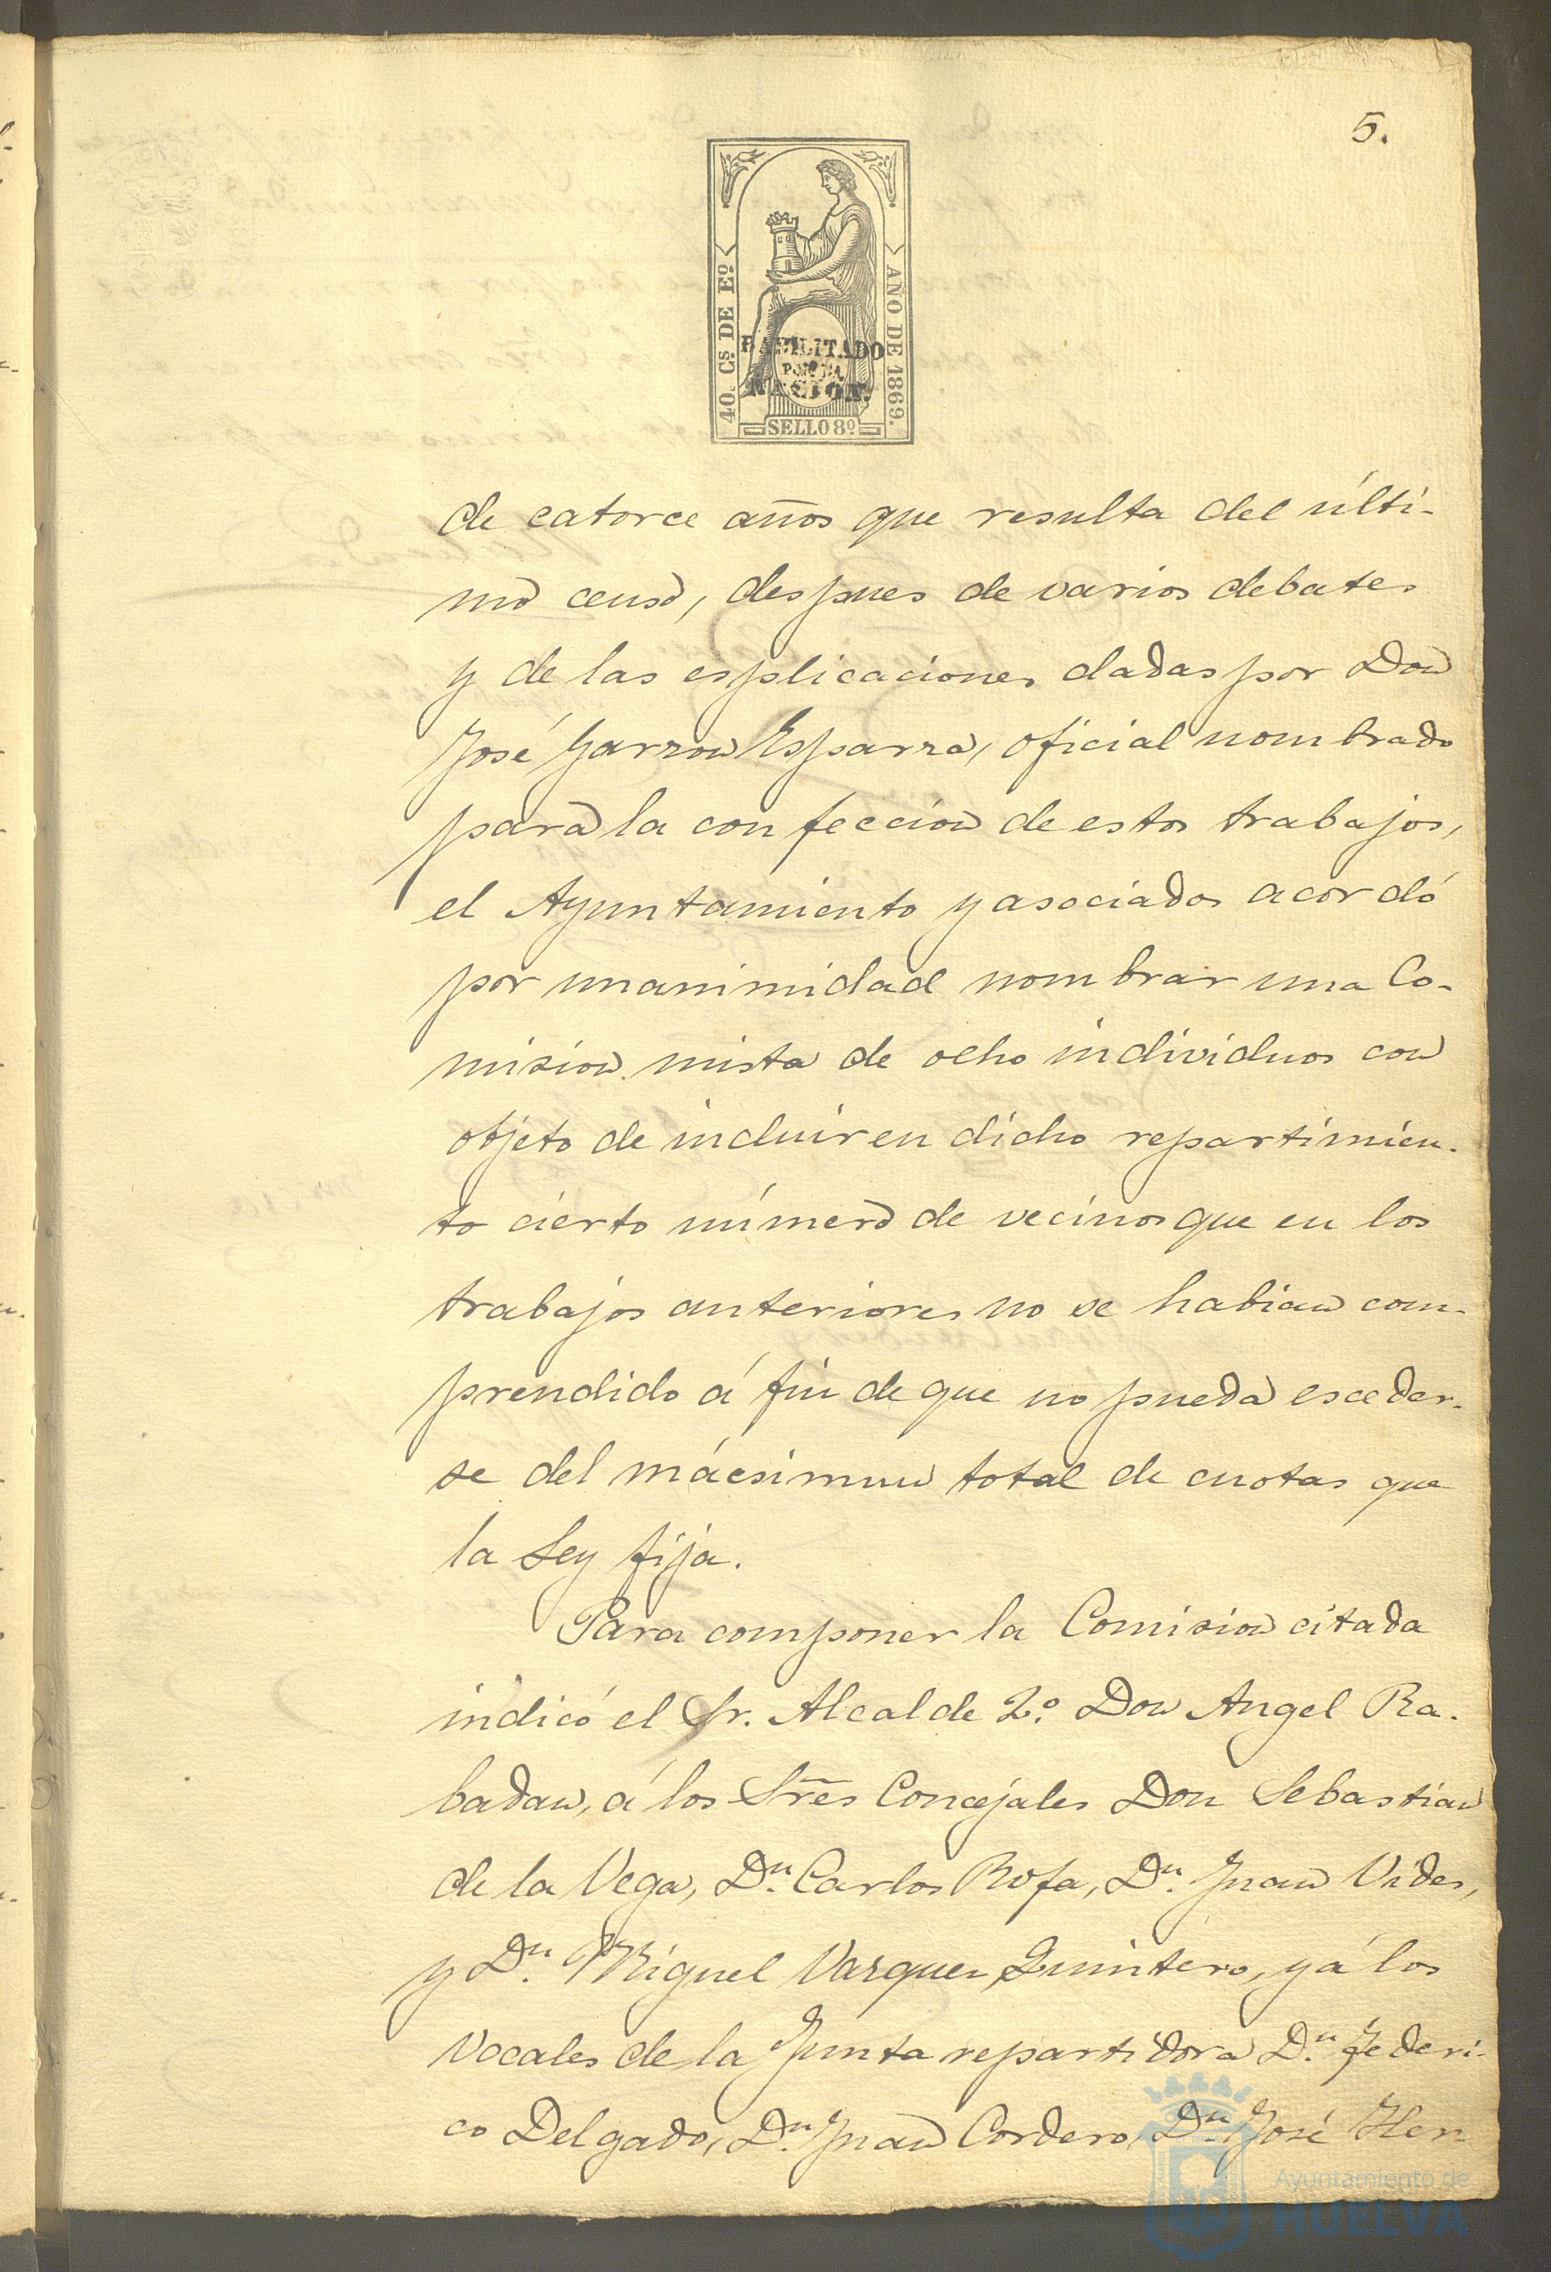 5.
40. Cs. DE Eº
AÑO DE 1869.
HABILITADO
POR LA
NACION.
SELLO 8º
de catorce años que resulta del últi-
mo censo, despues de varios debates
y de las esplicaciones dadas por Don
José Garzon Esparza, oficial nombrado
para la confeccion de estos trabajos,
el Ayuntamiento y asociados acordó
por unanimidad nombrar una Co-
mision mista de ocho individuos con
objeto de incluir en dicho repartimien-
to cierto número de vecinos que en los
trabajos anteriores no se habian com-
prendido á fin de que no pueda esceder-
se del mácsimun total de cuotas que
la Ley fija.
Para componer la Comision citada
indicó el Sr. Alcalde 2.º Don Angel Ra-
badan, á los Sres Concejales Don Sebastian
de la Vega, Dn. Carlos Rofa, Dn. Juan Vides,
y Dn. Miguel Vazquez Quintero, y á los
Vocales de la Junta repartidora Dn. Federi-
co Delgado, Dn. Juan Cordero, Dn. José Her-
Ayuntamiento de
HUELVA